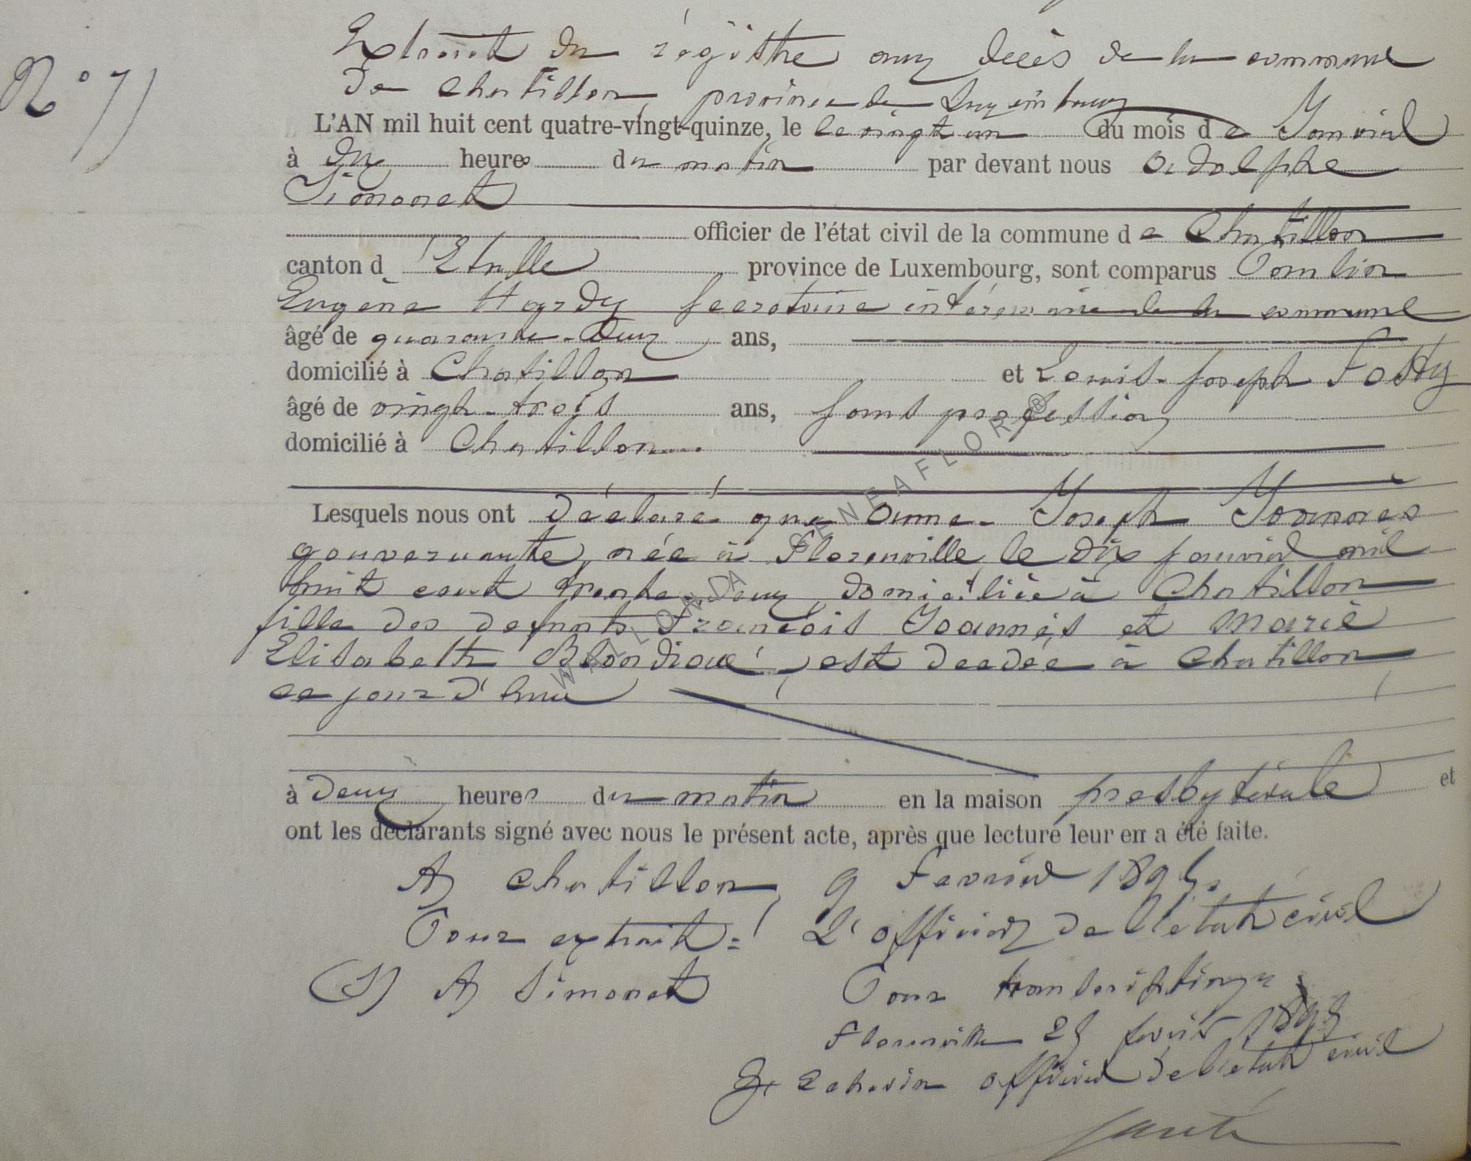 Extrait du régistre aux décès de la commune
N° 77
de Chatillon, province de Luxembourg
L'AN mil huit cent quatre-vingt-quinze, le le vingt un du mois de Janvier
à dix heures du matin par devant nous Adolphe
Simonet
officier de l'état civil de la commune de Chatillon
canton d'Etalle province de Luxembourg, sont comparus
Eugène Hardy secretaire intérimaire de la commune
âgé de quarante-deux ans,
domicilié à Chatillon et Louis-Joseph Fosty
âgé de vingt-trois ans, sans profession
domicilié à Chatillon
Lesquels nous ont déclaré que Anne-Joseph Joannès
gouvernante, née à Florenville le dix janvier mil
huit cent trente deux, domiciliée à Chatillon
fille des defunts François Joannès et Marie
Elisabeth est decedée à Chatillon
ce jour d'hui
à deux heures du matin en la maison presbytérale et
ont les déclarants signé avec nous le présent acte, après que lecture leur en a été faite.
A Chatillon, 9 Fevrier 1895.
Pour extrait: L'officier de l'état civil
(S) A Simonet Pour transcription
Florenville 25 1895
Echevin officier de l'etat civil
WALLONIA GENEAFLORE